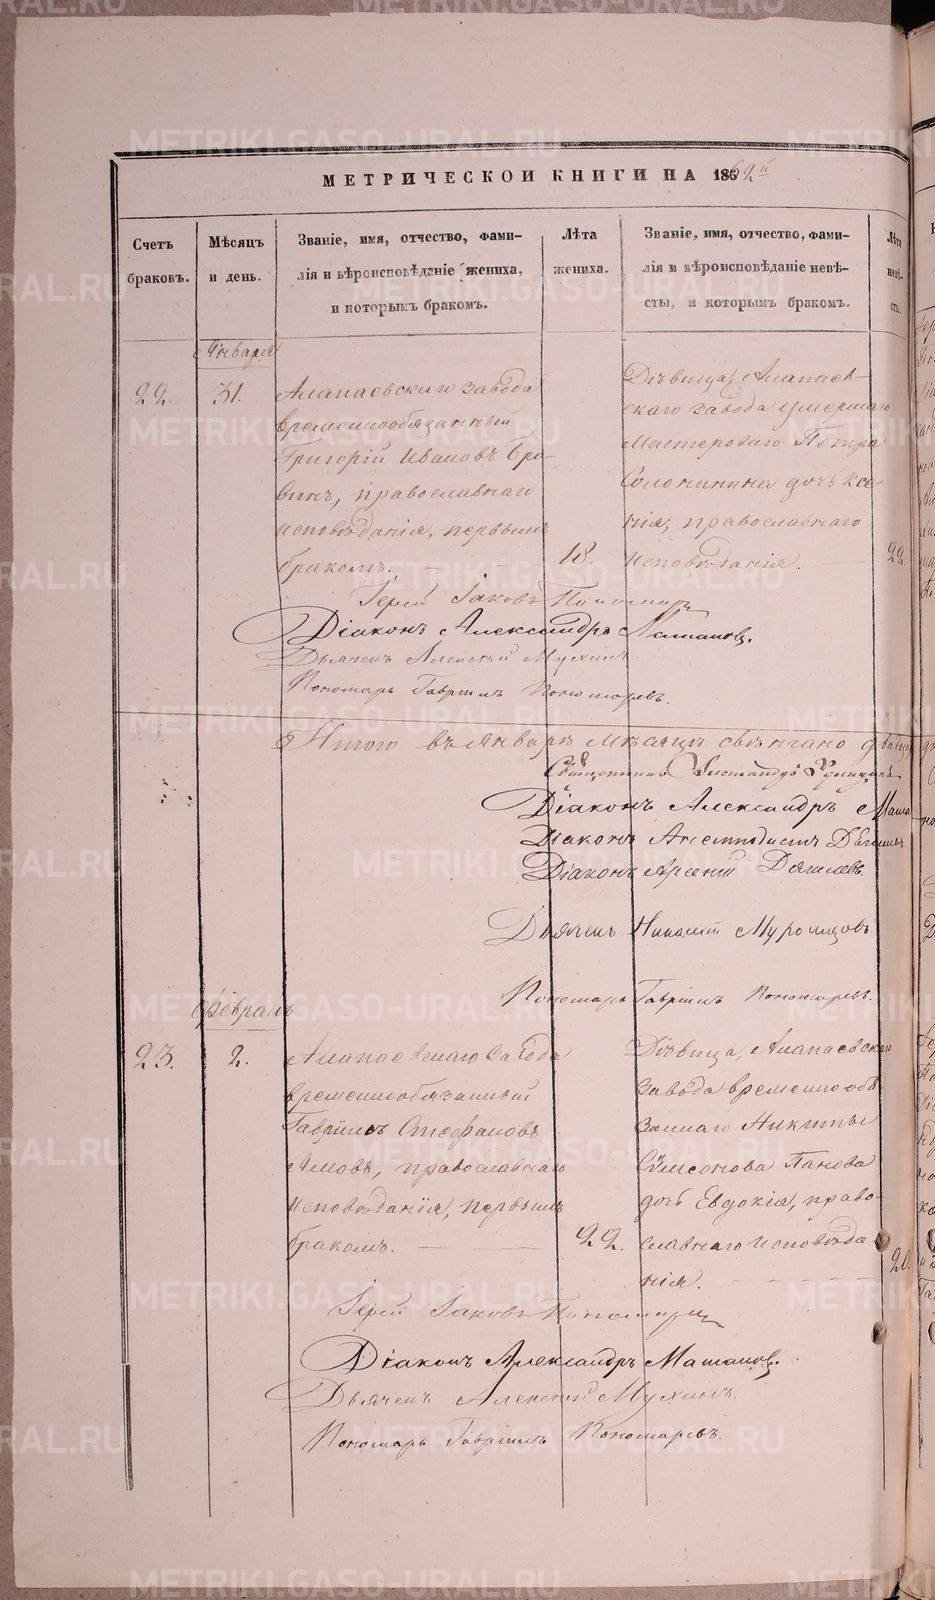 МЕТРИЧЕСКОЙ КНИГИ НА 1862й
Счетъ браковъ.
Мѣсяцъ и день.
Званіе, имя, отчество, фами-
лія и вѣроисповѣданіе жениха,
и которымъ бракомъ.
Лѣта жениха.
Званіе, имя, отчество, фами-
лія и вѣроисповѣданіе невѣ-
сты, и которымъ бракомъ.
Лѣта невѣ-
сты.
Января
22. 31.
Алапаевскаго завода
временнообязанный
Григорій Ивановъ
православнаго
исповѣданія, первымъ
бракомъ.
18.
Дѣвица, Алапаев-
скаго завода умершаго
Мастероваго Петра
Солонинина дочь Ксе-
нія, православнаго
исповѣданія.
22.
Іерей Іаковъ Пономаревъ
Діаконъ Александръ
Дьячекъ Алексѣй Мухинъ.
Пономарь Гавріилъ Пономаревъ.
Итого въ Январѣ мѣсяцѣ свѣнчано
Священникъ
Діаконъ Александръ
Діаконъ
Діаконъ Арсеній
Дьячекъ Муромцовъ
Пономарь Гавріилъ Пономаревъ.
Февраль
23. 2.
Алапаевскаго завода
временнообязанный
Гавріилъ Стефановъ
православнаго
исповѣданія, первымъ
бракомъ.
22.
Дѣвица, Алапаевскаго
завода временнообя
заннаго Никиты
Симеонова Панова
дочь Евдокія, право-
славнаго исповѣда
нія.
20.
Іерей Іаковъ Пономаревъ
Діаконъ Александръ
Дьячекъ Алексѣй Мухинъ.
Пономарь Гавріилъ Пономаревъ.
METRIKI.GASO-URAL.RU